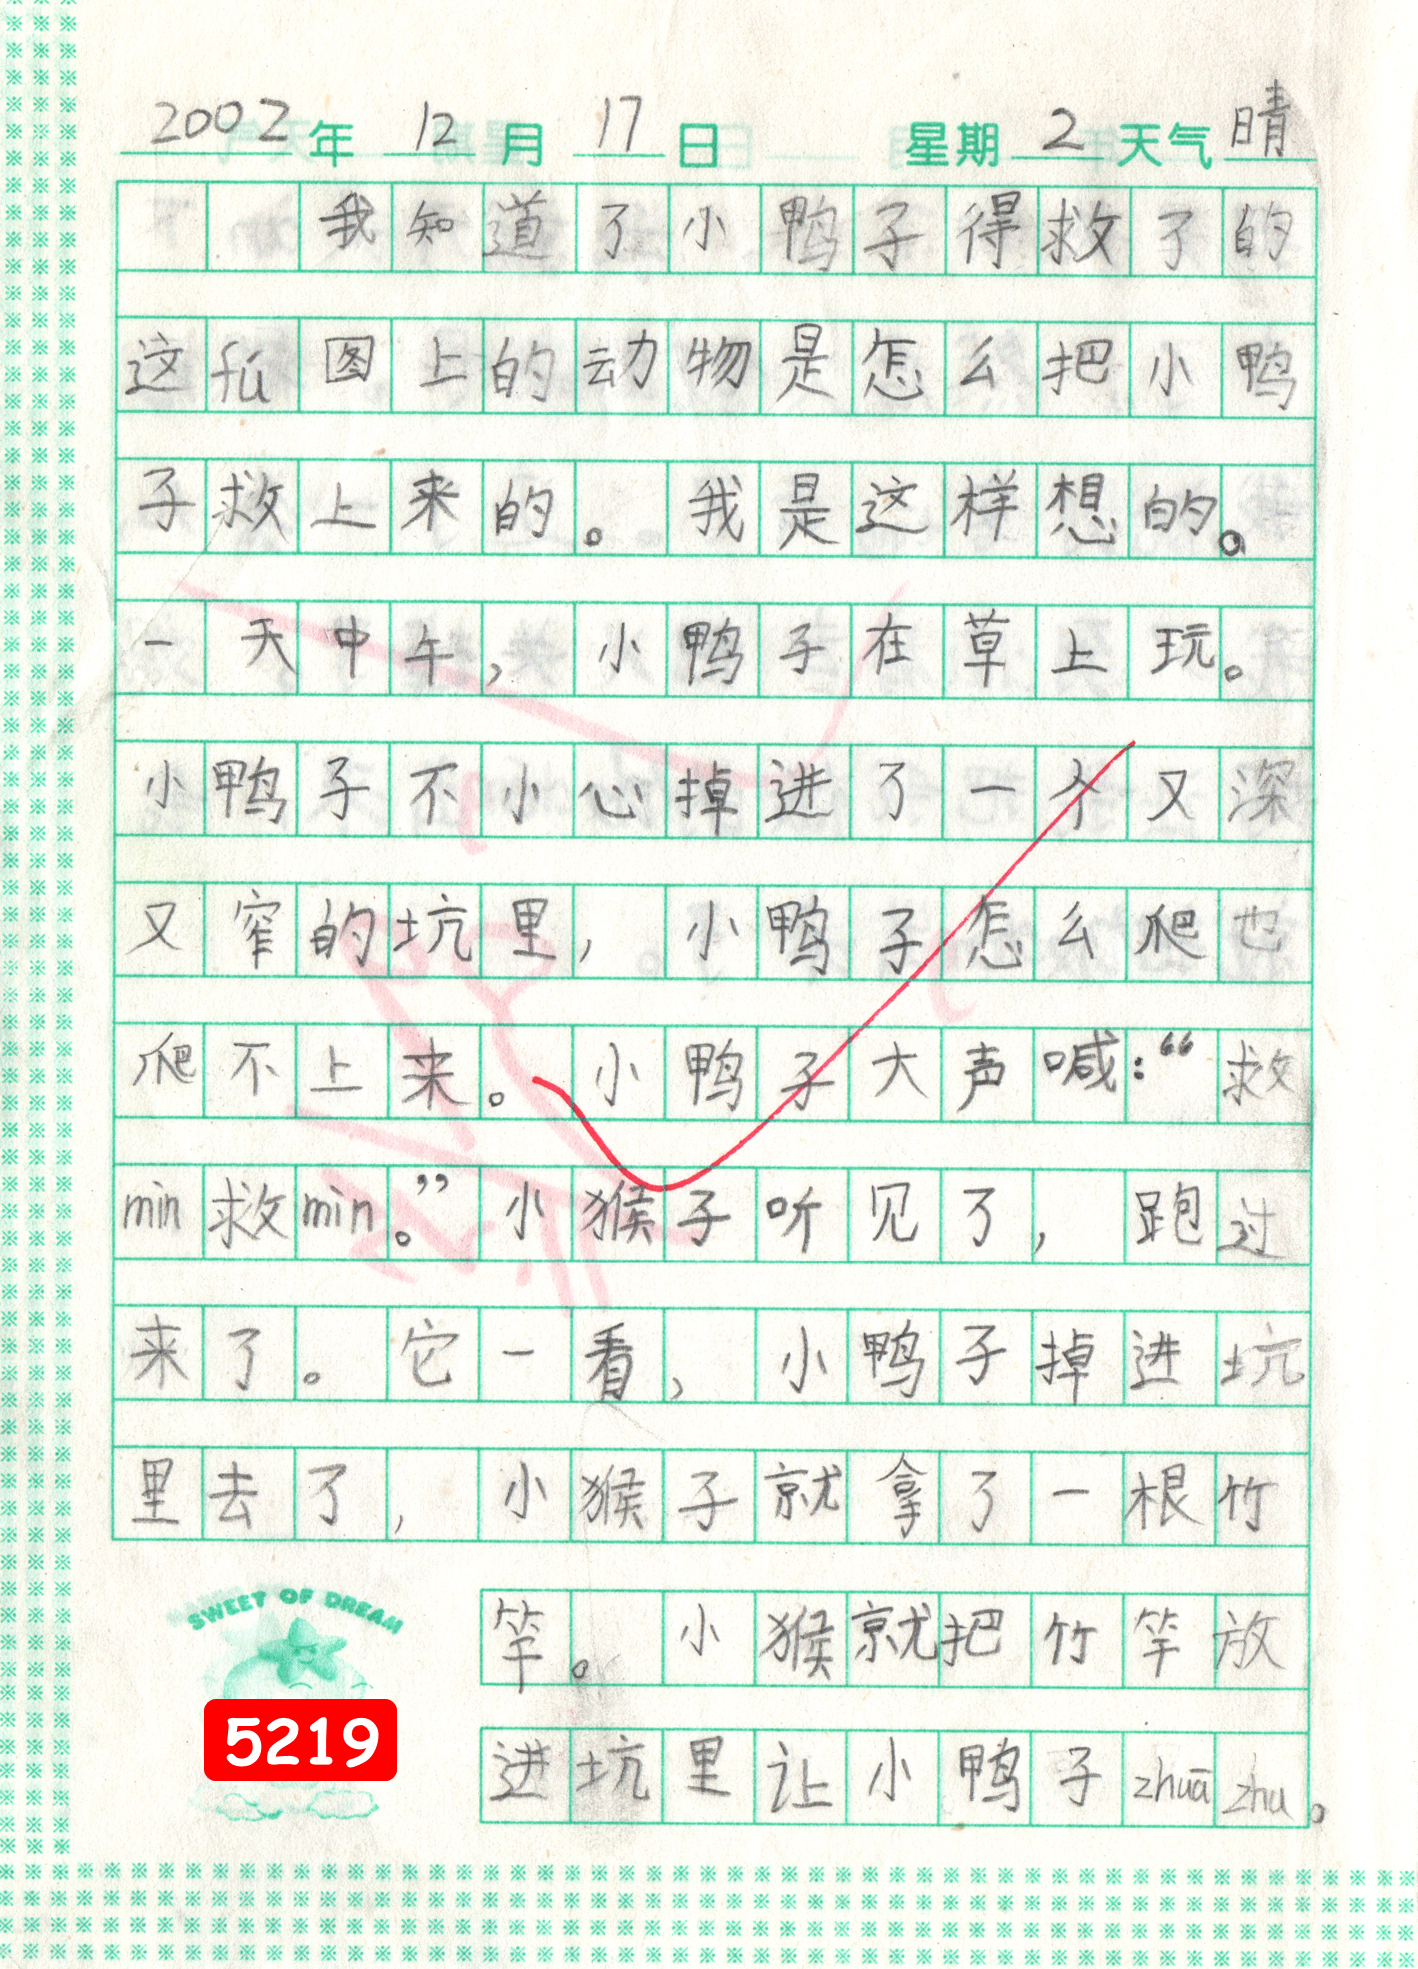 2002年 12月 17日 星期2 天气晴
我知道了小鸭子得救了的
这fu图上的动物是怎么把小鸭
子救上来的。我是这样想的。
一天中午，小鸭子在草上玩。
小鸭子不小心掉进了一个又深
又窄的坑里，小鸭子怎么爬也
爬不上来。小鸭子大声喊：“救
min救min。”小猴子听见了，跑过
来了。它一看，小鸭子掉进坑
里去了，小猴子就拿了一根竹
竿。小猴就把竹竿放
进坑里让小鸭子zhuā zhu。
SWEET OF DREAM
5219